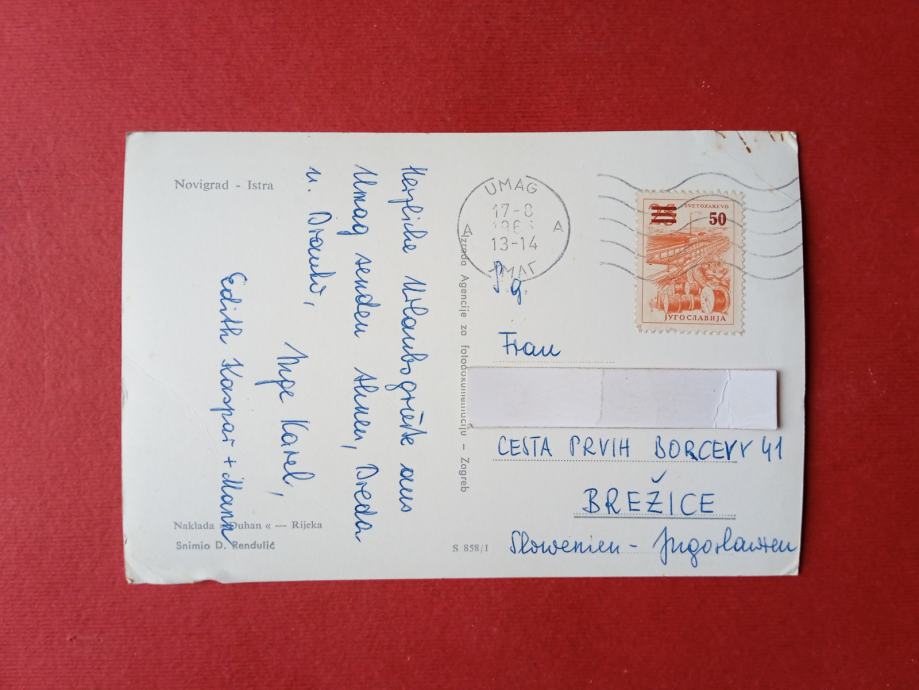 Novigrad - Istra
Herzliche Urlaubsgrüße aus
Umag senden Ihnen, Breda
u. Branko,
Inge Karel,
Edith Kaspar + Mann
Naklada »Duhan« — Rijeka
Snimio D. Rendulić
S 858/1
Izrada Agencije za fotodokumentaciju — Zagreb
UMAG
17-8
13-14
A A
UMAG
SVETOZAREVO
50
ЈУГОСЛАВИЈА
Frau
CESTA PRVIH BORCEVV 41
BREŽICE
Slowenien - Jugoslawien